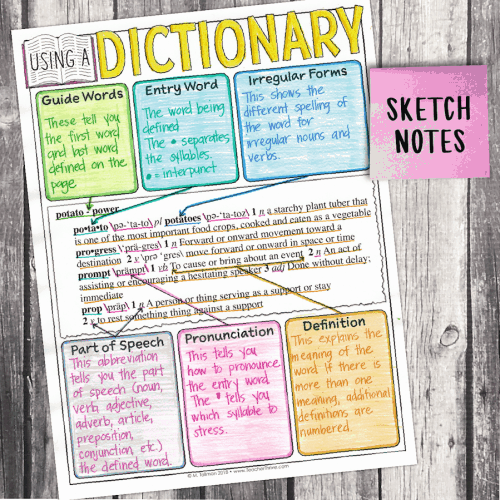 USING A
DICTIONARY
SKETCH
NOTES
Guide Words
These tell you
the first word
and last word
defined on the
page.
Entry Word
The word being
defined
The • separates
the syllables.
• = interpunct
Irregular Forms
This shows the
different spelling of
the word for
irregular nouns and
verbs.
potato · power
po•ta•to \pə-'ta-to\ pl potatoes \pə-'ta-toz\ 1 n a starchy plant tuber that
is one of the most important food crops, cooked and eaten as a vegetable
pro•gress \'prä-gres\ 1 n Forward or onward movement toward a
destination 2 v \prə 'gres\ move forward or onward in space or time
prompt \prämpt\ 1 vb To cause or bring about an event 2 n An act of
assisting or encouraging a hesitating speaker 3 adj Done without delay;
immediate
prop \präp\ 1 n A person or thing serving as a support or stay
2 v to rest something against a support
Part of Speech
This abbreviation
tells you the part
of speech (noun,
verb, adjective,
adverb, article,
preposition,
conjunction, etc.)
the defined word.
Pronunciation
This tells you
how to pronounce
the entry word.
The ' tells you
which syllable to
stress.
Definition
This explains the
meaning of the
word. If there is
more than one
meaning, additional
definitions are
numbered.
© M. Tallman 2018 • www.teacherthrive.com